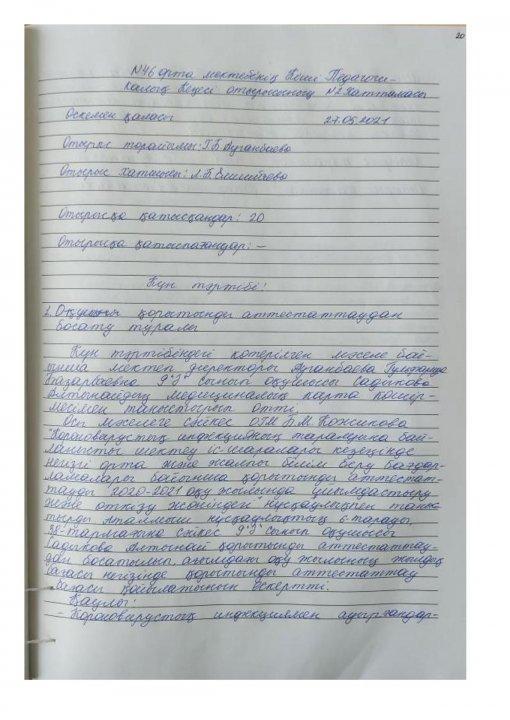 20
№46 орта мектебінің Кіші Педагоги-
калық Кеңесі отырысының №2 Хаттамасы
Өскемен қаласы 27.05.2021
Отырыс төрайымы: Г.Б. Ауганбаева
Отырыс хатшысы: Л.Б.
Отырысқа қатысқандар: 20
Отырысқа қатыспағандар: –
Күн тәртібі:
1. Оқушыны қорытынды аттестаттаудан
босату туралы
Күн тәртібіндегі көтерілген мәселе бой-
ынша мектеп директоры Ауганбаева
Базарбаевна 9"Г" сынып оқушысы Садыкова
Алтынайдың медициналық карта көшір-
месімен таныстырып өтті.
Осы мәселеге сәйкес Б.М. Кожикова
"Короновирустық инфекцияның таралуына бай-
ланысты шектеу іс-шаралары кезеңінде
негізгі орта және жалпы білім беру бағдар-
ламалары бойынша қорытынды аттестат-
тауды 2020-2021 оқу жылында ұйымдастыру
және өткізу жөніндегі" нұсқаулықпен таныс-
тырды. Аталмыш нұсқаулықтың 6-тарауы,
38-тармағына сәйкес 9"Г" сынып оқушысы
Садыкова Алтынай қорытынды аттестаттау-
дан босатылып, ағымдағы оқу жылының жылдық
бағасы негізінде қорытынды аттестаттау
бағасы қойылатынын ескертті.
Қаулы:
- Короновирустық инфекциямен ауырғандар-